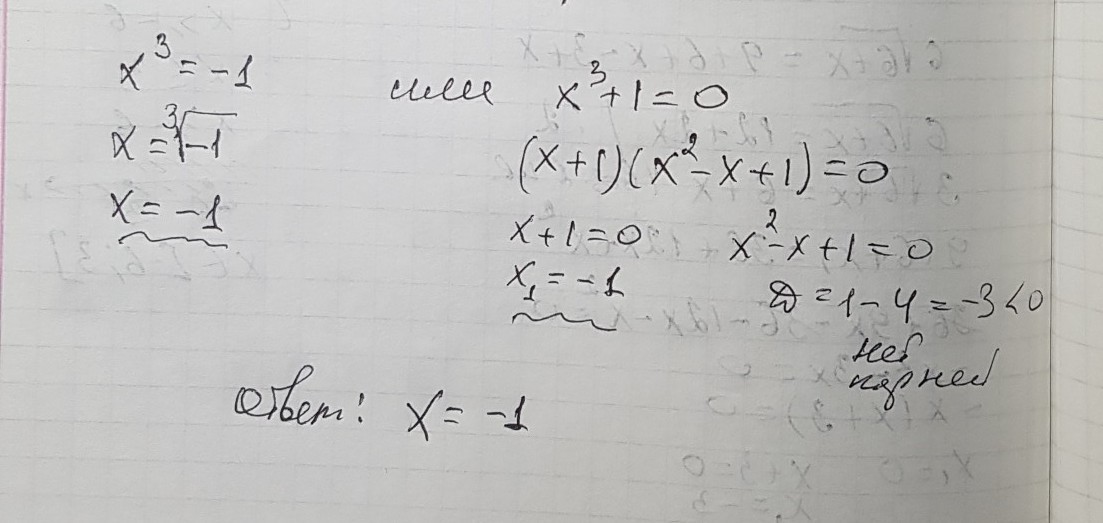 x³ = -1
x = ∛-1
x = -1
или x³+1=0
(x+1)(x²-x+1)=0
x+1=0 x²-x+1=0
x₁=-1 D=1-4=-3<0
нет
корней
Ответ: x=-1